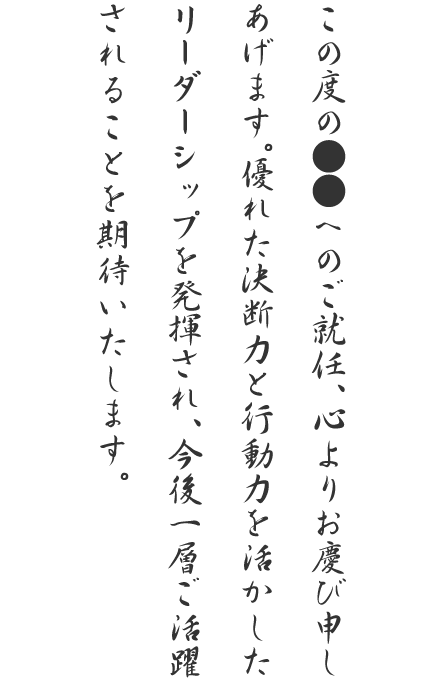 この度の●●へのご就任、心よりお慶び申し
あげます。優れた決断力と行動力を活かした
リーダーシップを発揮され、今後一層ご活躍
されることを期待いたします。